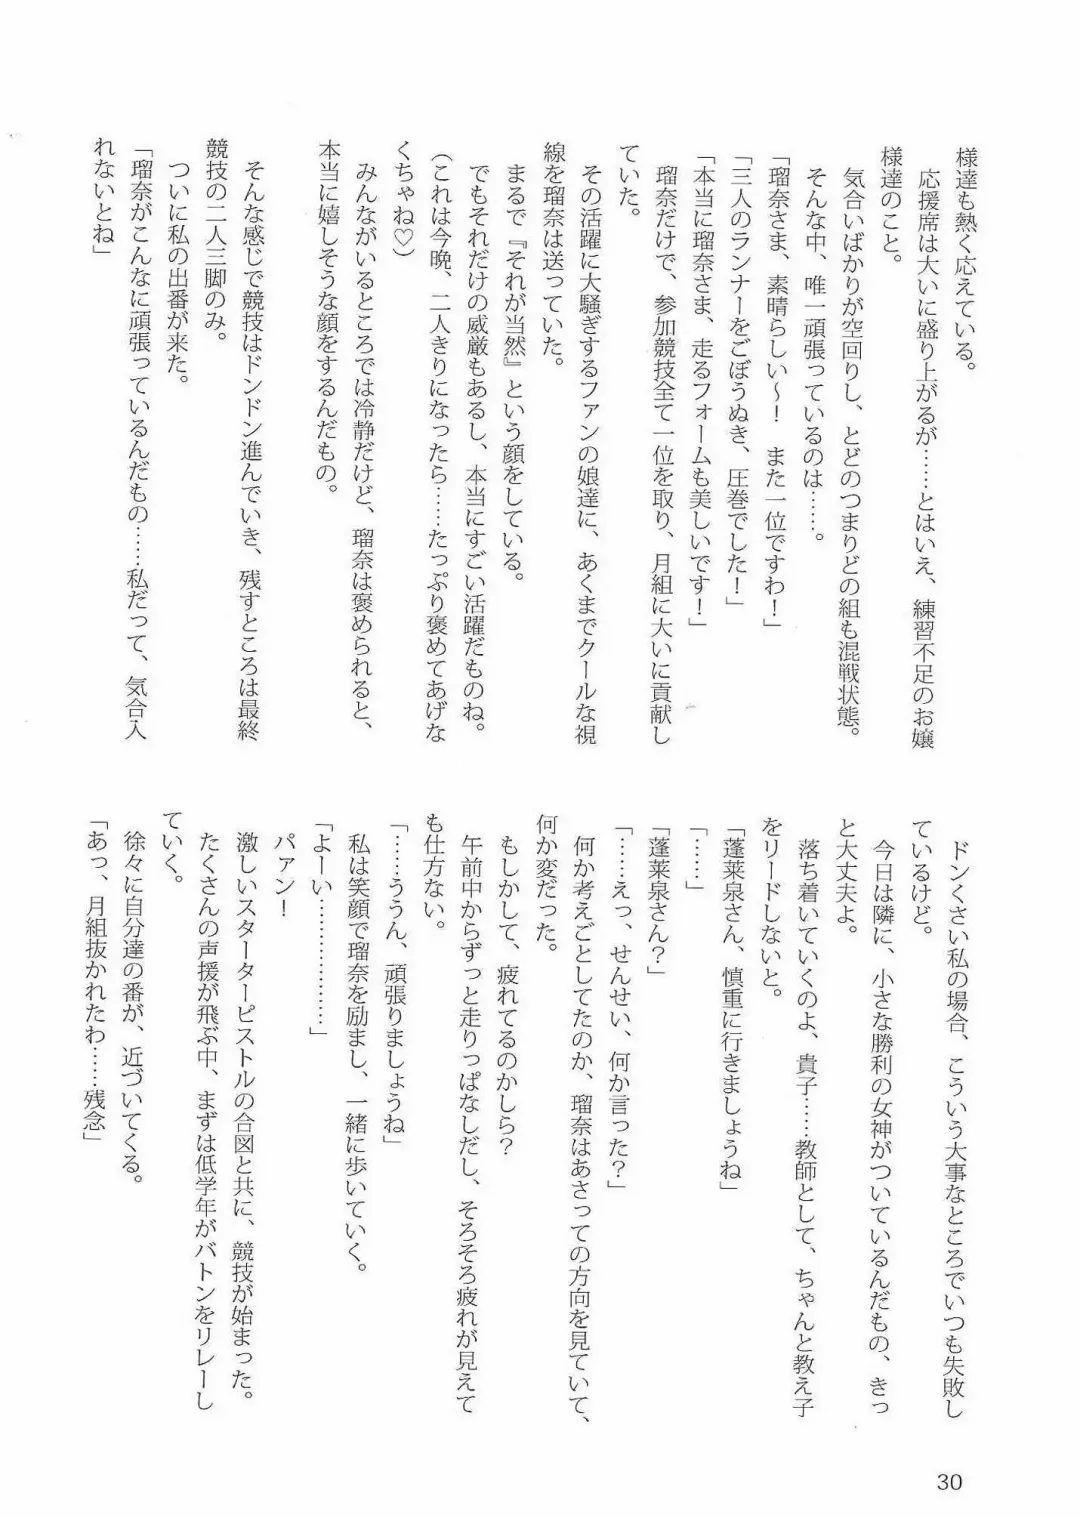 様達も熱く応えている。
　応援席は大いに盛り上がるが……とはいえ、練習不足のお嬢
様達のこと。
　気合いばかりが空回りし、とどのつまりどの組も混戦状態。
　そんな中、唯一頑張っているのは……。
「瑠奈さま、素晴らしい～！　また一位ですわ！」
「三人のランナーをごぼうぬき、圧巻でした！」
「本当に瑠奈さま、走るフォームも美しいです！」
　瑠奈だけで、参加競技全て一位を取り、月組に大いに貢献し
ていた。
　その活躍に大騒ぎするファンの娘達に、あくまでクールな視
線を瑠奈は送っていた。
　まるで『それが当然』という顔をしている。
　でもそれだけの威厳もあるし、本当にすごい活躍だものね。
（これは今晩、二人きりになったら……たっぷり褒めてあげな
くちゃね♡）
　みんながいるところでは冷静だけど、瑠奈は褒められると、
本当に嬉しそうな顔をするんだもの。
　そんな感じで競技はドンドン進んでいき、残すところは最終
競技の二人三脚のみ。
　ついに私の出番が来た。
「瑠奈がこんなに頑張っているんだもの……私だって、気合入
れないとね」
　ドンくさい私の場合、こういう大事なところでいつも失敗し
ているけど。
　今日は隣に、小さな勝利の女神がついているんだもの、きっ
と大丈夫よ。
　落ち着いていくのよ、貴子……教師として、ちゃんと教え子
をリードしないと。
「蓬莱泉さん、慎重に行きましょうね」
「……」
「蓬莱泉さん？」
「……えっ、せんせい、何か言った？」
　何か考えごとしてたのか、瑠奈はあさっての方向を見ていて、
何か変だった。
　もしかして、疲れてるのかしら？
　午前中からずっと走りっぱなしだし、そろそろ疲れが見えて
も仕方ない。
「……ううん、頑張りましょうね」
　私は笑顔で瑠奈を励まし、一緒に歩いていく。
「よーい………………」
　パァン！
　激しいスターターピストルの合図と共に、競技が始まった。
　たくさんの声援が飛ぶ中、まずは低学年がバトンをリレーし
ていく。
　徐々に自分達の番が、近づいてくる。
「あっ、月組抜かれたわ……残念」
30